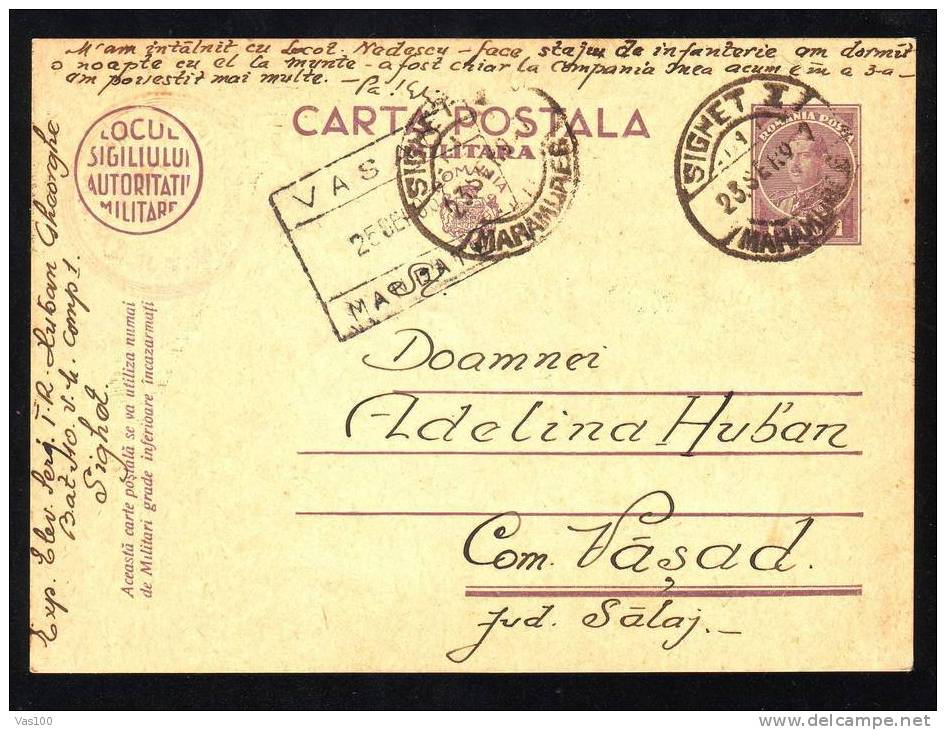 M'am întâlnit cu Locot. Nadescu - face stajiu de infanterie am dormit
o noapte cu el la munte - a fost chiar la Compania mea acum e în a 3-a -
am povestit mai multe. - Pa!
CARTA POSTALA
MILITARA
ROMANIA
LOCUL
SIGILIULUI
AUTORITATII
MILITARE
VAS
25
MARGHITA
SIGHET
23 SE
MARAMUREȘ
SIGHET
23 SE
MARAMUREȘ
ROMANIA POSTA
Doamnei
Adelina Huban
Com. Vășad.
Jud. Sălaj. -
Exp. Elev. Serj. T.R. Huban Gheorghe
Bat. v.h. comp 1.
Sighet
Această carte poștală se va utiliza numai
de Militari grade inferioare incazarmați
Vas100
www.delcampe.net